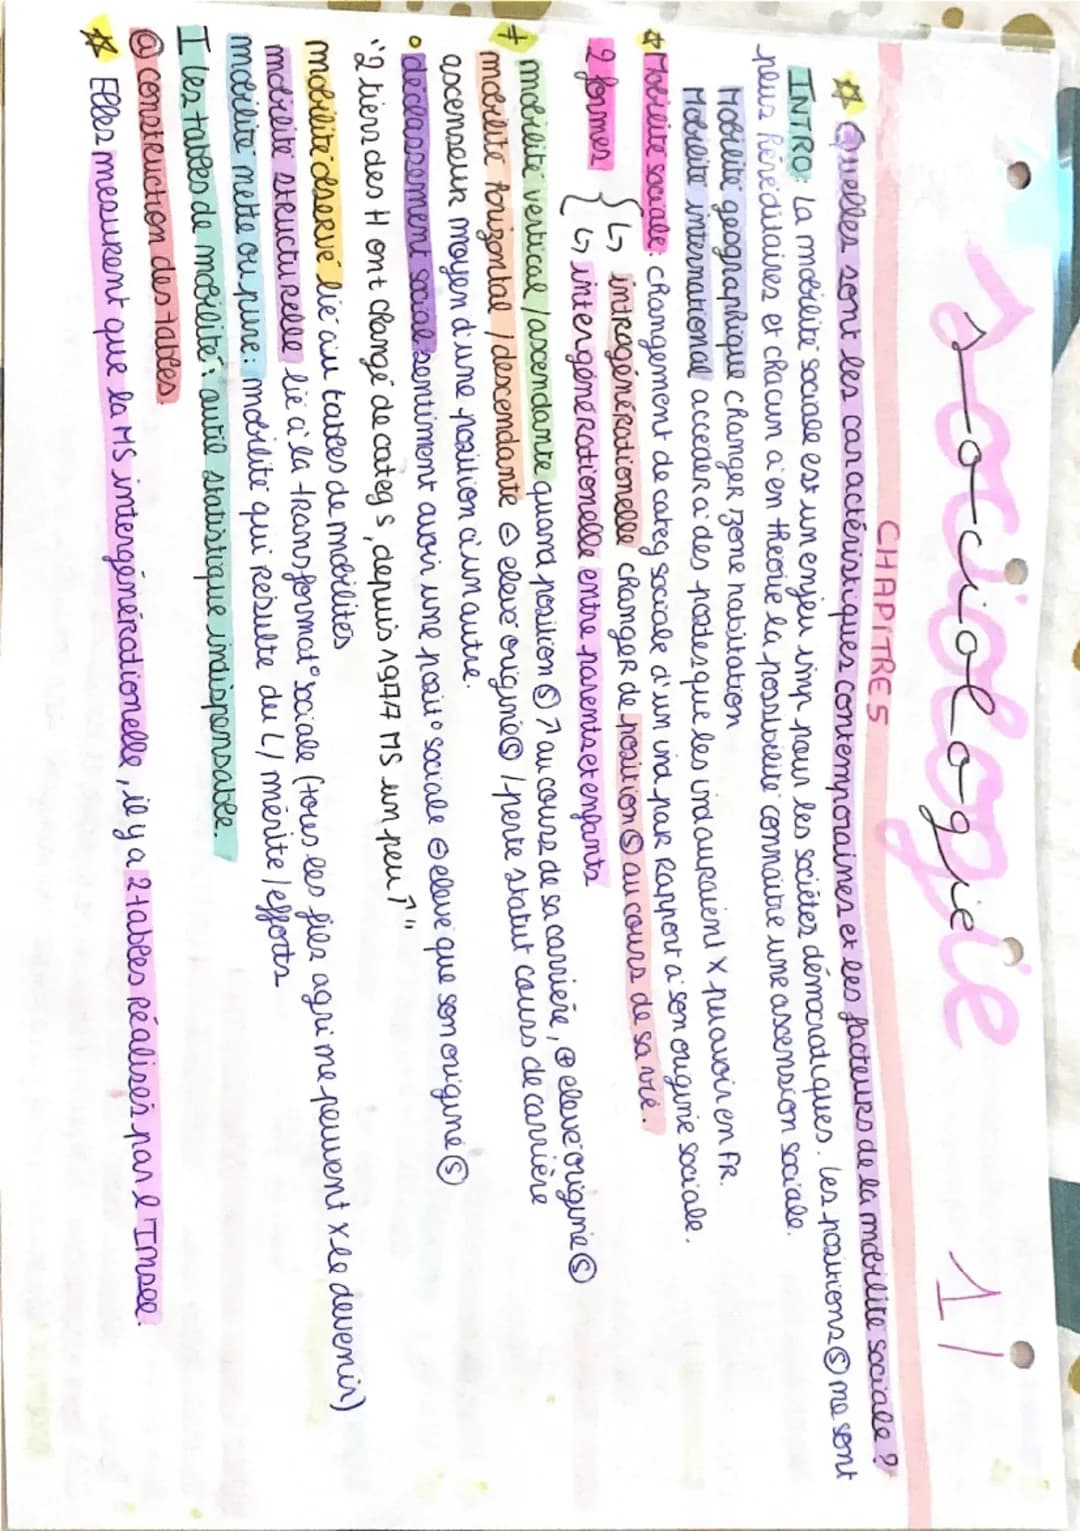 Sociologie 1/
CHAPITRE 5
Quelles sont les caractéristiques contemporaines et les facteurs de la mobilité sociale ?
INTRO: La mobilité sociale est un enjeu imp pour les sociétés démocratiques. Les positions Ⓢ ne sont
plus héréditaires et chacun a en théorie la possibilité connaitre une ascension sociale.
Mobilité géographique changer zone habitation
Mobilité international acceder a des postes que les ind auraient x pu avoir en FR.
Mobilité sociale: changement de categ sociale d'un ind par rapport a son originie sociale.
2 formes { ↳ intragénérationelle changer de position Ⓢ au cours de sa vie.
↳ intergénérationelle entre parents et enfants
≠ mobilité vertical / ascendante quand position Ⓢ ↗ au cours de sa carrière, ⊕ elevé origine Ⓢ
mobilité horizontal / descendante ⊖ elevé origine Ⓢ / perte statut cours de carrière
ascenseur moyen d'une position à un autre.
• déclassement social sentiment avoir une posit° sociale ⊖ elevé que son origine Ⓢ
"2 tiers des H ont changé de categ s, depuis 1977 MS un peu ↑"
mobilité observé lié au tables de mobilités
mobilité structurelle lié à la transformat° sociale (tous les fils agri ne peuvent x le devenir)
mobilité nette ou pure: mobilité qui résulte du L / mérite / efforts
I les tables de mobilité: outil statistique indispensable.
@ construction des tables.
Elles mesurent que la MS intergénérationelle, il y a 2 tables réalisés par l'Insee.